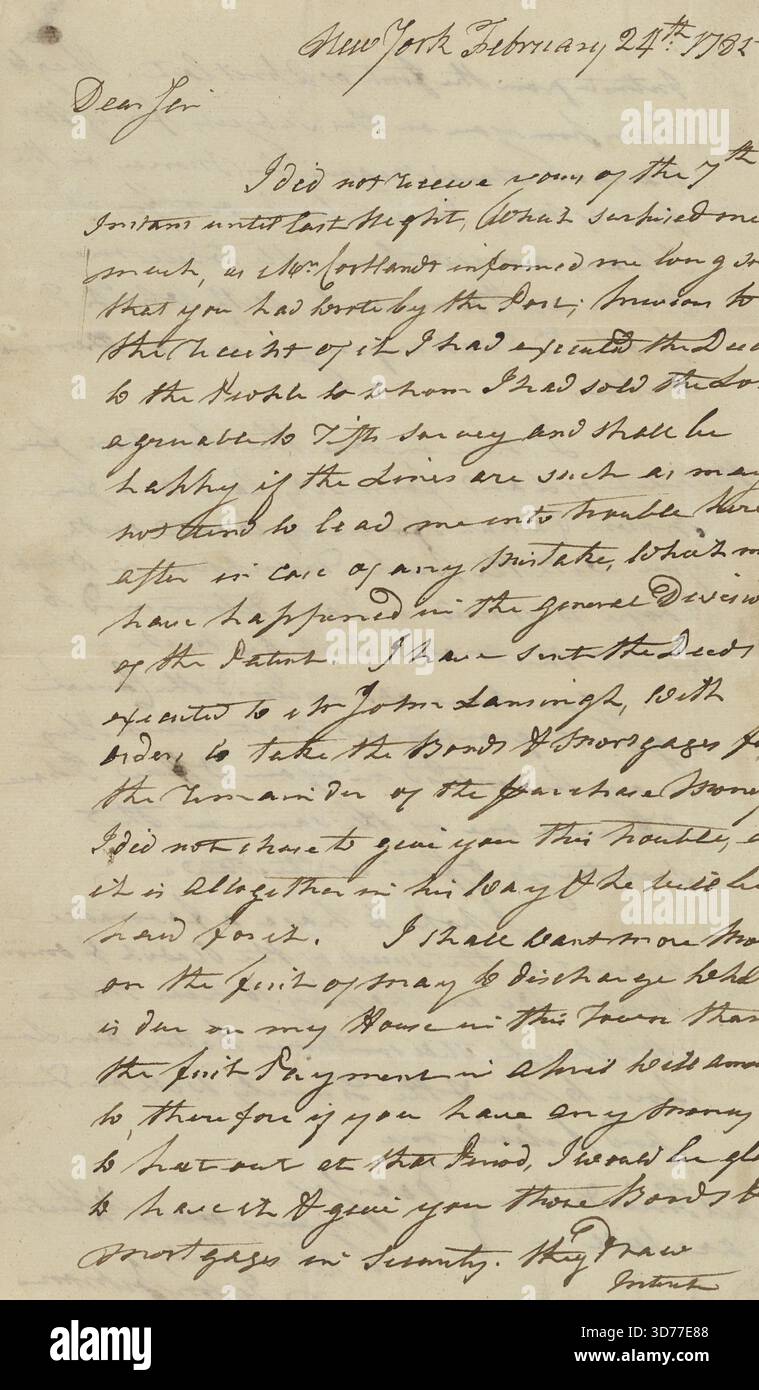 New York February 24th: 178
Dear Sir
I did not receive yours of the 7th
Instant untill last Night, Which surprised me
much, as Mr. Cortlandt informed me long
that you had wrote by the Post; Previous to
the receipt of it I had executed the Deed
to the People to whom I had sold the Lo
agreeable to Tifts survey and shall be
happy if the Lines are such as may
not tend to lead me into trouble here
after in case of any Mistake, Which m
have happened in the general Divisio
of the Patent. I have sent the Deeds
executed to Mr John Lansingh, with
orders to take the Bonds & Mortgages f
the remainder of the purchase Money
I did not chose to give you this trouble, a
it is altogether in his Way & he will be
for it. I shall want more Mo
on the first of May to discharge wha
is due on my House in this Town than
the first Payment in April will amo
to, therefore if you have any Money
to put out at that Period, I would be gl
to have it & give you those Bonds &
Mortgages in Security. they Draw
Interest
alamy
Image ID: 3D77E88
www.alamy.com